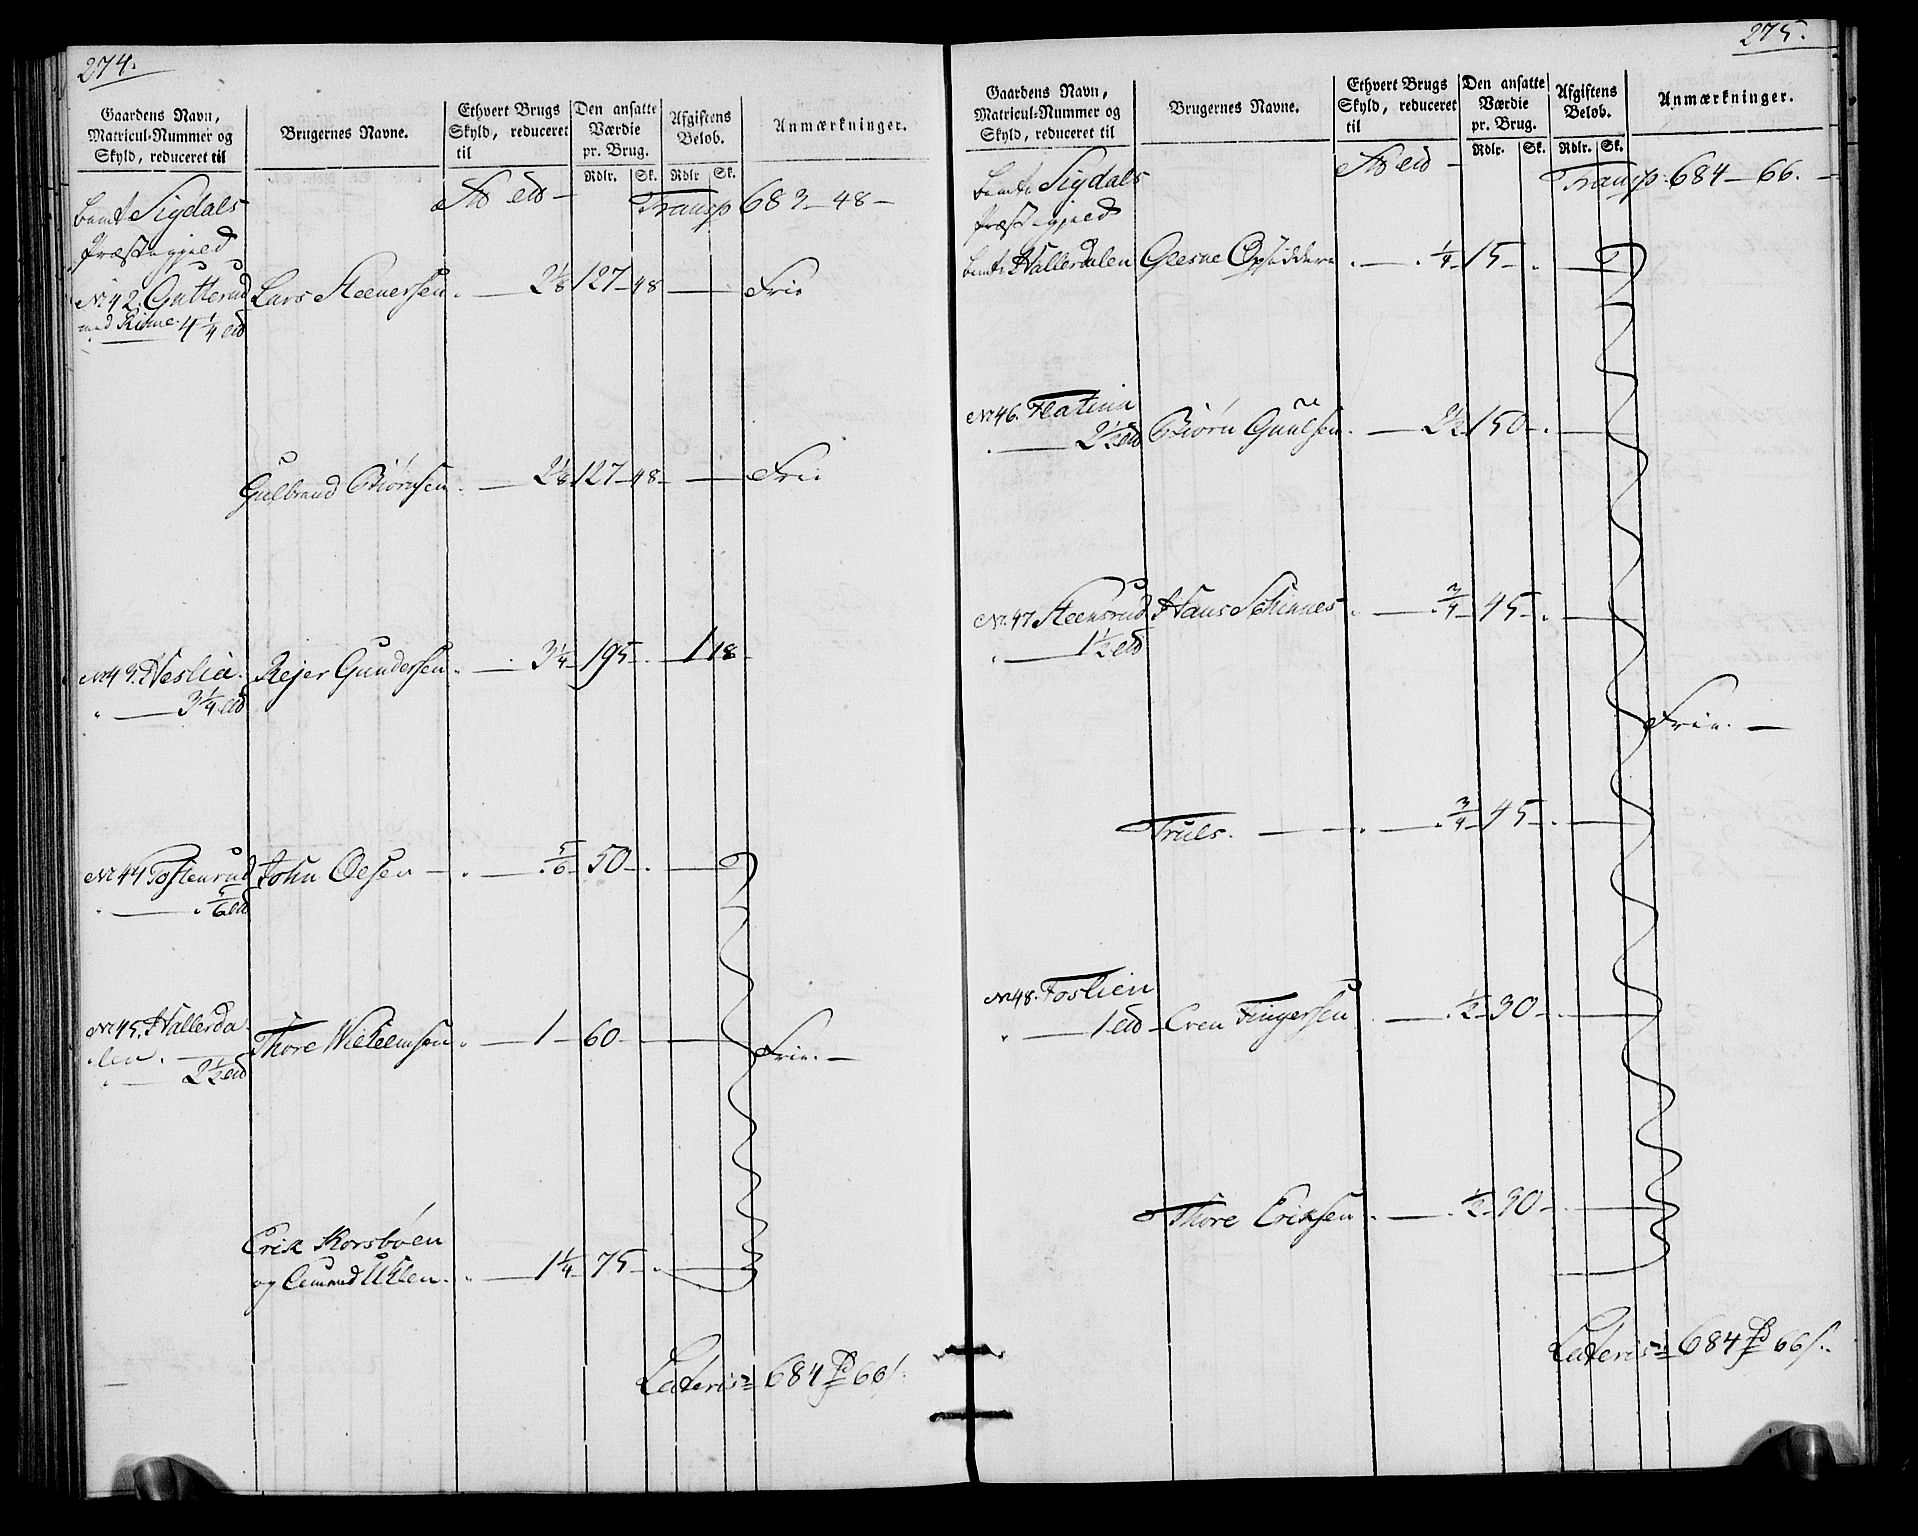 274.
Gaardens Navn,
Matricul-Nummer og
Skyld, reduceret til
Brugernes Navne.
Ethvert Brugs
Skyld, reduceret
til
Den ansatte
Værdie
pr. Brug.
Rdlr. Sk.
Afgiftens
Beløb.
Rdlr Sk.
Anmærkninger.
Sigdals
Præstegjeld
Transp 683 - 48 -
No 42. Gutterud Lars Steenersen. 2⅛ 127 - 48 Frie
med 4¼
Gulbrand Biørnsen. 2⅛ 127 - 48 - Frie
No 43. Heslia. Rejer Gundersen. 3¼ - 195 - 1 18 -
3¼
No 44 Tostenrud John Olsen 5/6 - 50 -
5/6
No 45. Hallerda
len. Thore Willumsen 1 - 60 - Frie. -
2½
Erik Korsbøen
og 1¼ - 75 -
Lateris = 684 66 s.
275.
Gaardens Navn,
Matricul-Nummer og
Skyld, reduceret til
Brugernes Navne.
Ethvert Brugs
Skyld, reduceret
til
Den ansatte
Værdie
pr. Brug.
Rdlr. Sk.
Afgiftens
Beløb.
Rdlr. Sk.
Anmærkninger.
Sigdals
Præstegjeld
Transp 684 - 66. -
Hallerdalen ¼ 15 -
No 46. Flatin
2½ Biørn 2½ 150 -
No 47 Steensrud Hans ¾ - 45 -
1½
Frie. -
Truls. ¾ - 45 -
No 48. Foslien
1 Even Fingersen ½ - 30 -
Thore Eriksen ½ - 30 -
Lateris = 684 66 s.